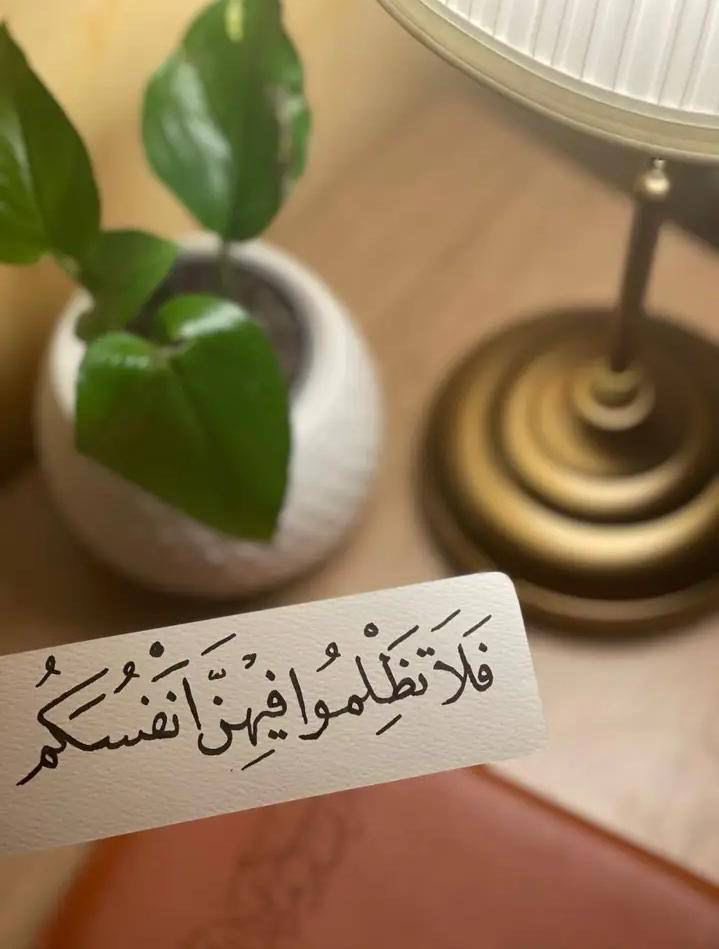 فَلَا تَظْلِمُوا فِيهِنَّ أَنْفُسَكُمُ